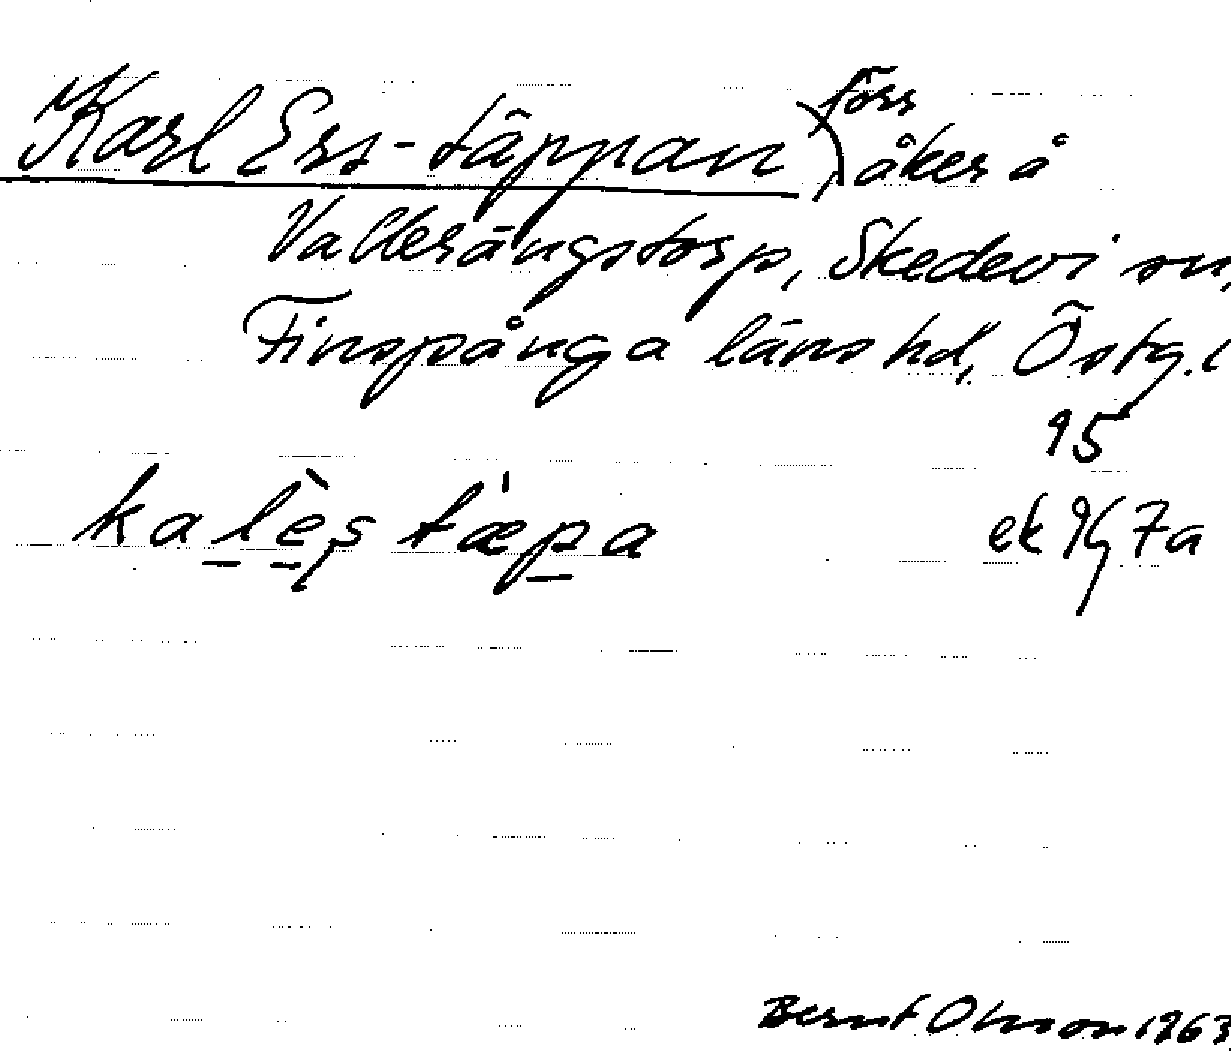 Karl Ers-täppan, förr
åker å
Vallerängstorp, Skedevi sn,
Finspånga läns hd, Östg.l
95
kalès tæpa ek 9G 7a
Bernt Olsson 1963